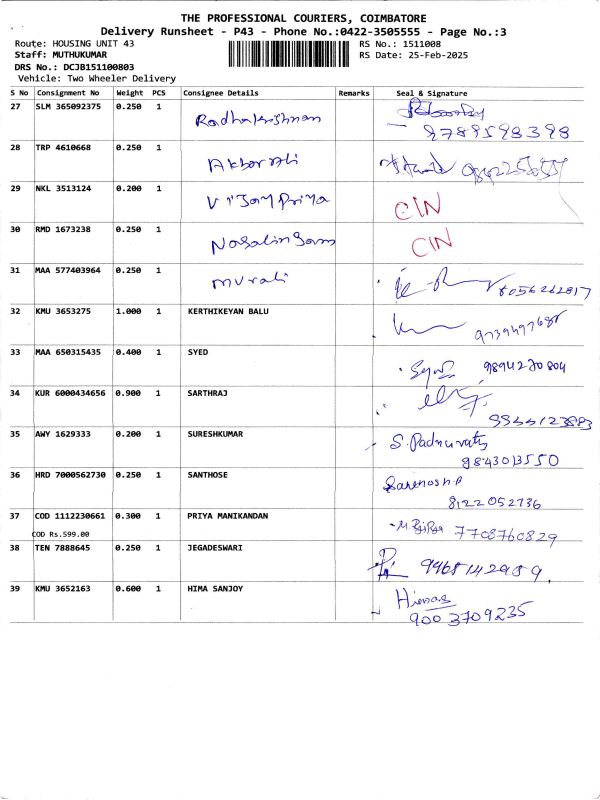 THE PROFESSIONAL COURIERS, COIMBATORE
Delivery Runsheet - P43 - Phone No.:0422-3505555 - Page No.:3
Route: HOUSING UNIT 43 RS No.: 1511008
Staff: MUTHUKUMAR RS Date: 25-Feb-2025
DRS No.: DCJB151100803
Vehicle: Two Wheeler Delivery
S No Consignment No Weight PCS Consignee Details Remarks Seal & Signature
27 SLM 365092375 0.250 1 Radhakrishnan
9789598398
28 TRP 4610668 0.250 1 Akbar Ali
29 NKL 3513124 0.200 1 Vijay Priya CIN
30 RMD 1673238 0.250 1 CIN
31 MAA 577403964 0.250 1 Murali
8056262817
32 KMU 3653275 1.000 1 KERTHIKEYAN BALU
33 MAA 650315435 0.400 1 SYED 9894270804
34 KUR 6000434656 0.900 1 SARTHRAJ
35 AWY 1629333 0.200 1 SURESHKUMAR
9843013550
36 HRD 7000562730 0.250 1 SANTHOSE
8122052736
37 COD 1112230661 0.300 1 PRIYA MANIKANDAN
COD Rs.599.00 7708760829
38 TEN 7888645 0.250 1 JEGADESWARI
39 KMU 3652163 0.600 1 HIMA SANJOY
9003709235